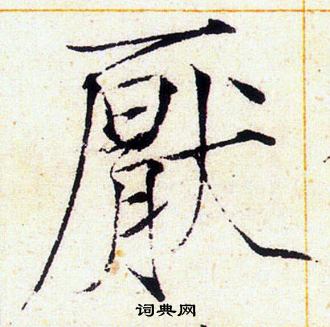 厭
词典网